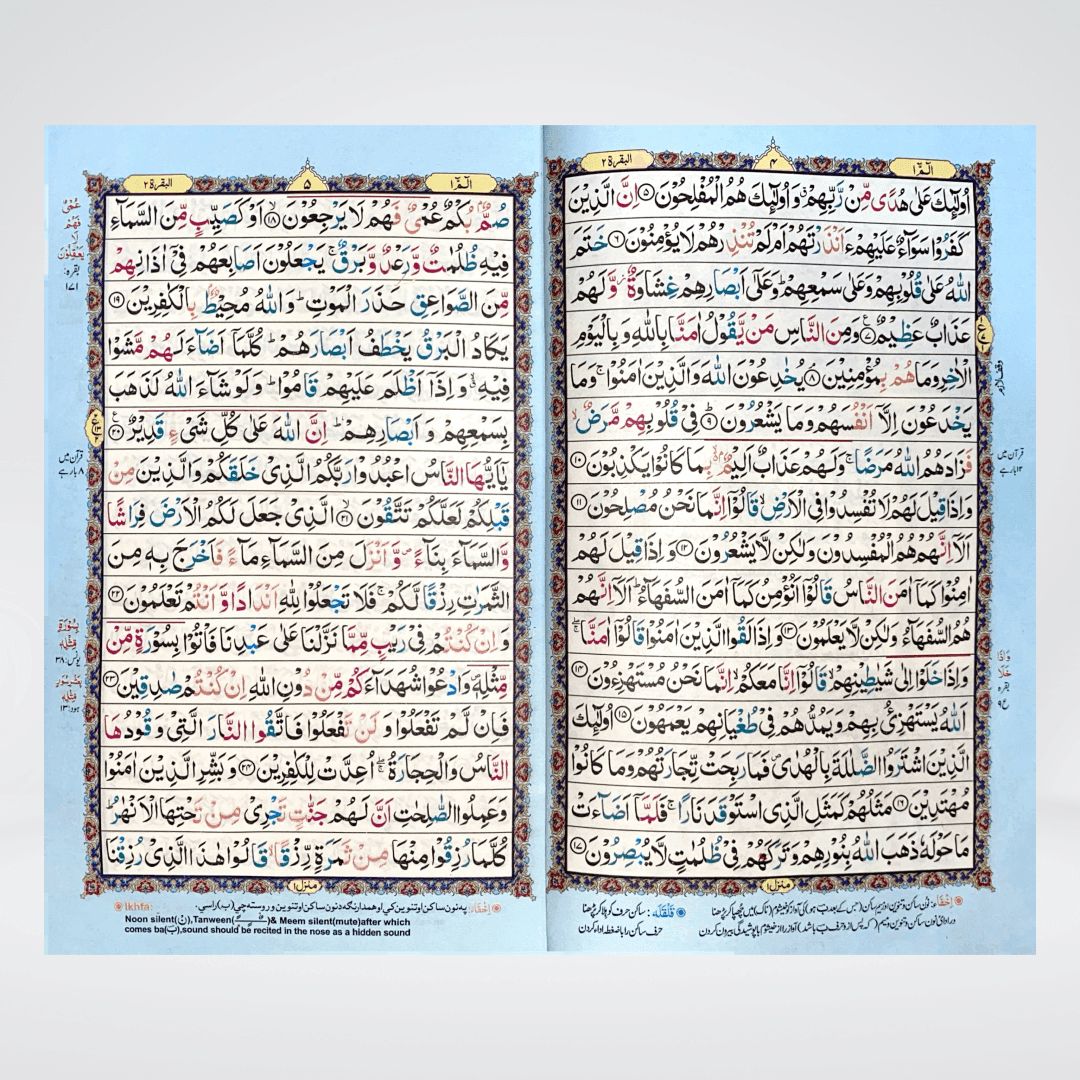 البقرة ٢
۴
الٓمّٓ ١
اُولٰٓئِكَ عَلٰى هُدًى مِّنْ رَّبِّهِمْ ۙ وَاُولٰٓئِكَ هُمُ الْمُفْلِحُوْنَ ۝٥ اِنَّ الَّذِيْنَ
كَفَرُوْا سَوَآءٌ عَلَيْهِمْ ءَاَنْذَرْتَهُمْ اَمْ لَمْ تُنْذِرْهُمْ لَا يُؤْمِنُوْنَ ۝٦ خَتَمَ
اللّٰهُ عَلٰى قُلُوْبِهِمْ وَعَلٰى سَمْعِهِمْ ؕ وَعَلٰٓى اَبْصَارِهِمْ غِشَاوَةٌ ؗ وَّلَهُمْ
عَذَابٌ عَظِيْمٌ ۝٧ وَمِنَ النَّاسِ مَنْ يَّقُوْلُ اٰمَنَّا بِاللّٰهِ وَبِالْيَوْمِ
الْاٰخِرِ وَمَا هُمْ بِمُؤْمِنِيْنَ ۝٨ يُخٰدِعُوْنَ اللّٰهَ وَالَّذِيْنَ اٰمَنُوْا ۚ وَمَا
يَخْدَعُوْنَ اِلَّآ اَنْفُسَهُمْ وَمَا يَشْعُرُوْنَ ۝٩ فِيْ قُلُوْبِهِمْ مَّرَضٌ ۙ
فَزَادَهُمُ اللّٰهُ مَرَضًا ۚ وَلَهُمْ عَذَابٌ اَلِيْمٌ ۢ بِمَا كَانُوْا يَكْذِبُوْنَ ۝١٠
وَاِذَا قِيْلَ لَهُمْ لَا تُفْسِدُوْا فِي الْاَرْضِ ۙ قَالُوْٓا اِنَّمَا نَحْنُ مُصْلِحُوْنَ ۝١١
اَلَآ اِنَّهُمْ هُمُ الْمُفْسِدُوْنَ وَلٰكِنْ لَّا يَشْعُرُوْنَ ۝١٢ وَاِذَا قِيْلَ لَهُمْ
اٰمِنُوْا كَمَآ اٰمَنَ النَّاسُ قَالُوْٓا اَنُؤْمِنُ كَمَآ اٰمَنَ السُّفَهَآءُ ؕ اَلَآ اِنَّهُمْ
هُمُ السُّفَهَآءُ وَلٰكِنْ لَّا يَعْلَمُوْنَ ۝١٣ وَاِذَا لَقُوا الَّذِيْنَ اٰمَنُوْا قَالُوْٓا اٰمَنَّا ۖۚ
وَاِذَا خَلَوْا اِلٰى شَيٰطِيْنِهِمْ ۙ قَالُوْٓا اِنَّا مَعَكُمْ ۙ اِنَّمَا نَحْنُ مُسْتَهْزِءُوْنَ ۝١٤
اَللّٰهُ يَسْتَهْزِئُ بِهِمْ وَيَمُدُّهُمْ فِيْ طُغْيَانِهِمْ يَعْمَهُوْنَ ۝١٥ اُولٰٓئِكَ
الَّذِيْنَ اشْتَرَوُا الضَّلٰلَةَ بِالْهُدٰى ۪ فَمَا رَبِحَتْ تِّجَارَتُهُمْ وَمَا كَانُوْا
مُهْتَدِيْنَ ۝١٦ مَثَلُهُمْ كَمَثَلِ الَّذِي اسْتَوْقَدَ نَارًا ۚ فَلَمَّآ اَضَآءَتْ
مَا حَوْلَهٗ ذَهَبَ اللّٰهُ بِنُوْرِهِمْ وَتَرَكَهُمْ فِيْ ظُلُمٰتٍ لَّا يُبْصِرُوْنَ ۝١٧
منزل ١
وقف لازم
قرآن میں
۱۲ بار ہے
وَاِذَا
خَلَا
بقره
ع ۹
اِخْفَاء: نون ساکن و تنوین اور میم ساکن (جس کے بعد بَ ہو) کی آواز کو خیشوم (ناک) میں چھپا کر پڑھنا
قَلْقَلَه: ساکن حرف کو ہلا کر پڑھنا
البقرة ٢
۵
الٓمّٓ ١
صُمٌّۢ بُكْمٌ عُمْيٌ فَهُمْ لَا يَرْجِعُوْنَ ۝١٨ اَوْ كَصَيِّبٍ مِّنَ السَّمَآءِ
فِيْهِ ظُلُمٰتٌ وَّرَعْدٌ وَّبَرْقٌ ۚ يَجْعَلُوْنَ اَصَابِعَهُمْ فِيْٓ اٰذَانِهِمْ
مِّنَ الصَّوَاعِقِ حَذَرَ الْمَوْتِ ؕ وَاللّٰهُ مُحِيْطٌۢ بِالْكٰفِرِيْنَ ۝١٩
يَكَادُ الْبَرْقُ يَخْطَفُ اَبْصَارَهُمْ ؕ كُلَّمَآ اَضَآءَ لَهُمْ مَّشَوْا
فِيْهِ ۙ وَاِذَآ اَظْلَمَ عَلَيْهِمْ قَامُوْا ؕ وَلَوْ شَآءَ اللّٰهُ لَذَهَبَ
بِسَمْعِهِمْ وَاَبْصَارِهِمْ ؕ اِنَّ اللّٰهَ عَلٰى كُلِّ شَيْءٍ قَدِيْرٌ ۝٢٠
يٰٓاَيُّهَا النَّاسُ اعْبُدُوْا رَبَّكُمُ الَّذِيْ خَلَقَكُمْ وَالَّذِيْنَ مِنْ
قَبْلِكُمْ لَعَلَّكُمْ تَتَّقُوْنَ ۝٢١ الَّذِيْ جَعَلَ لَكُمُ الْاَرْضَ فِرَاشًا
وَّالسَّمَآءَ بِنَآءً ۪ وَّاَنْزَلَ مِنَ السَّمَآءِ مَآءً فَاَخْرَجَ بِهٖ مِنَ
الثَّمَرٰتِ رِزْقًا لَّكُمْ ۚ فَلَا تَجْعَلُوْا لِلّٰهِ اَنْدَادًا وَّاَنْتُمْ تَعْلَمُوْنَ ۝٢٢
وَاِنْ كُنْتُمْ فِيْ رَيْبٍ مِّمَّا نَزَّلْنَا عَلٰى عَبْدِنَا فَاْتُوْا بِسُوْرَةٍ مِّنْ
مِّثْلِهٖ ۪ وَادْعُوْا شُهَدَآءَكُمْ مِّنْ دُوْنِ اللّٰهِ اِنْ كُنْتُمْ صٰدِقِيْنَ ۝٢٣
فَاِنْ لَّمْ تَفْعَلُوْا وَلَنْ تَفْعَلُوْا فَاتَّقُوا النَّارَ الَّتِيْ وَقُوْدُهَا
النَّاسُ وَالْحِجَارَةُ ۖۚ اُعِدَّتْ لِلْكٰفِرِيْنَ ۝٢٤ وَبَشِّرِ الَّذِيْنَ اٰمَنُوْا
وَعَمِلُوا الصّٰلِحٰتِ اَنَّ لَهُمْ جَنّٰتٍ تَجْرِيْ مِنْ تَحْتِهَا الْاَنْهٰرُ ؕ
كُلَّمَا رُزِقُوْا مِنْهَا مِنْ ثَمَرَةٍ رِّزْقًا ۙ قَالُوْا هٰذَا الَّذِيْ رُزِقْنَا
منزل ١
عُمْیٌ
فَهُمْ
لَا
یَعْقِلُوْنَ
بقره:
۱۷۱
قرآن میں
۸ بار ہے
بِسُوْرَةٍ
مِّثْلِهٖ
یونس: ۳۸
بِعَشْرِ سُوَرٍ
مِّثْلِهٖ
ہود: ۱۳
Ikhfa:
Noon silent(نْ),Tanween(ـًـٍـٌ)& Meem silent(mute)after which
comes ba(بَ),sound should be recited in the nose as a hidden sound